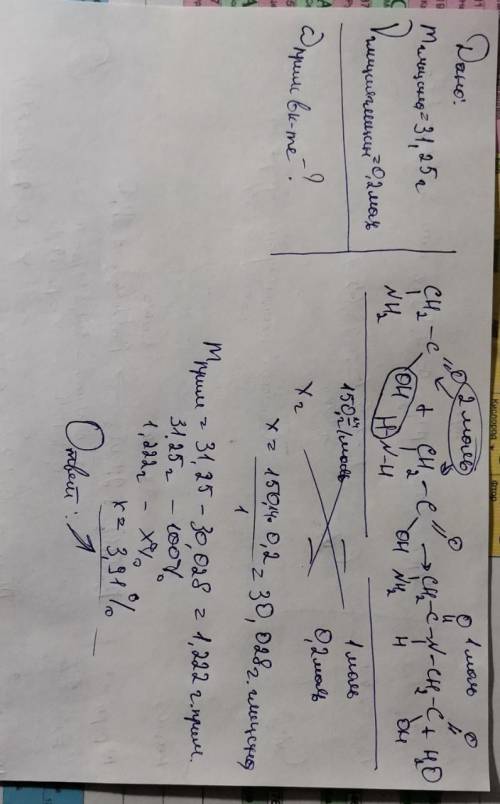 Дано:
m глицина = 31,25 г
ν глицилглицин = 0,2 моль
ω прим в к-те - ?
2 моль 1 моль
CH2 - C =O OH + CH2 - C =O OH → CH2 - C - N - CH2 - C =O OH + H2O
NH2 H N-H NH2 O H
150,14 г/моль 1 моль
x г 0,2 моль
x = 150,14 · 0,2 / 1 = 30,028 г. глицина
m прим = 31,25 - 30,028 = 1,222 г. прим.
31,25 г - 100%
1,222 г - x%
x = 3,91%
Ответ: ↗